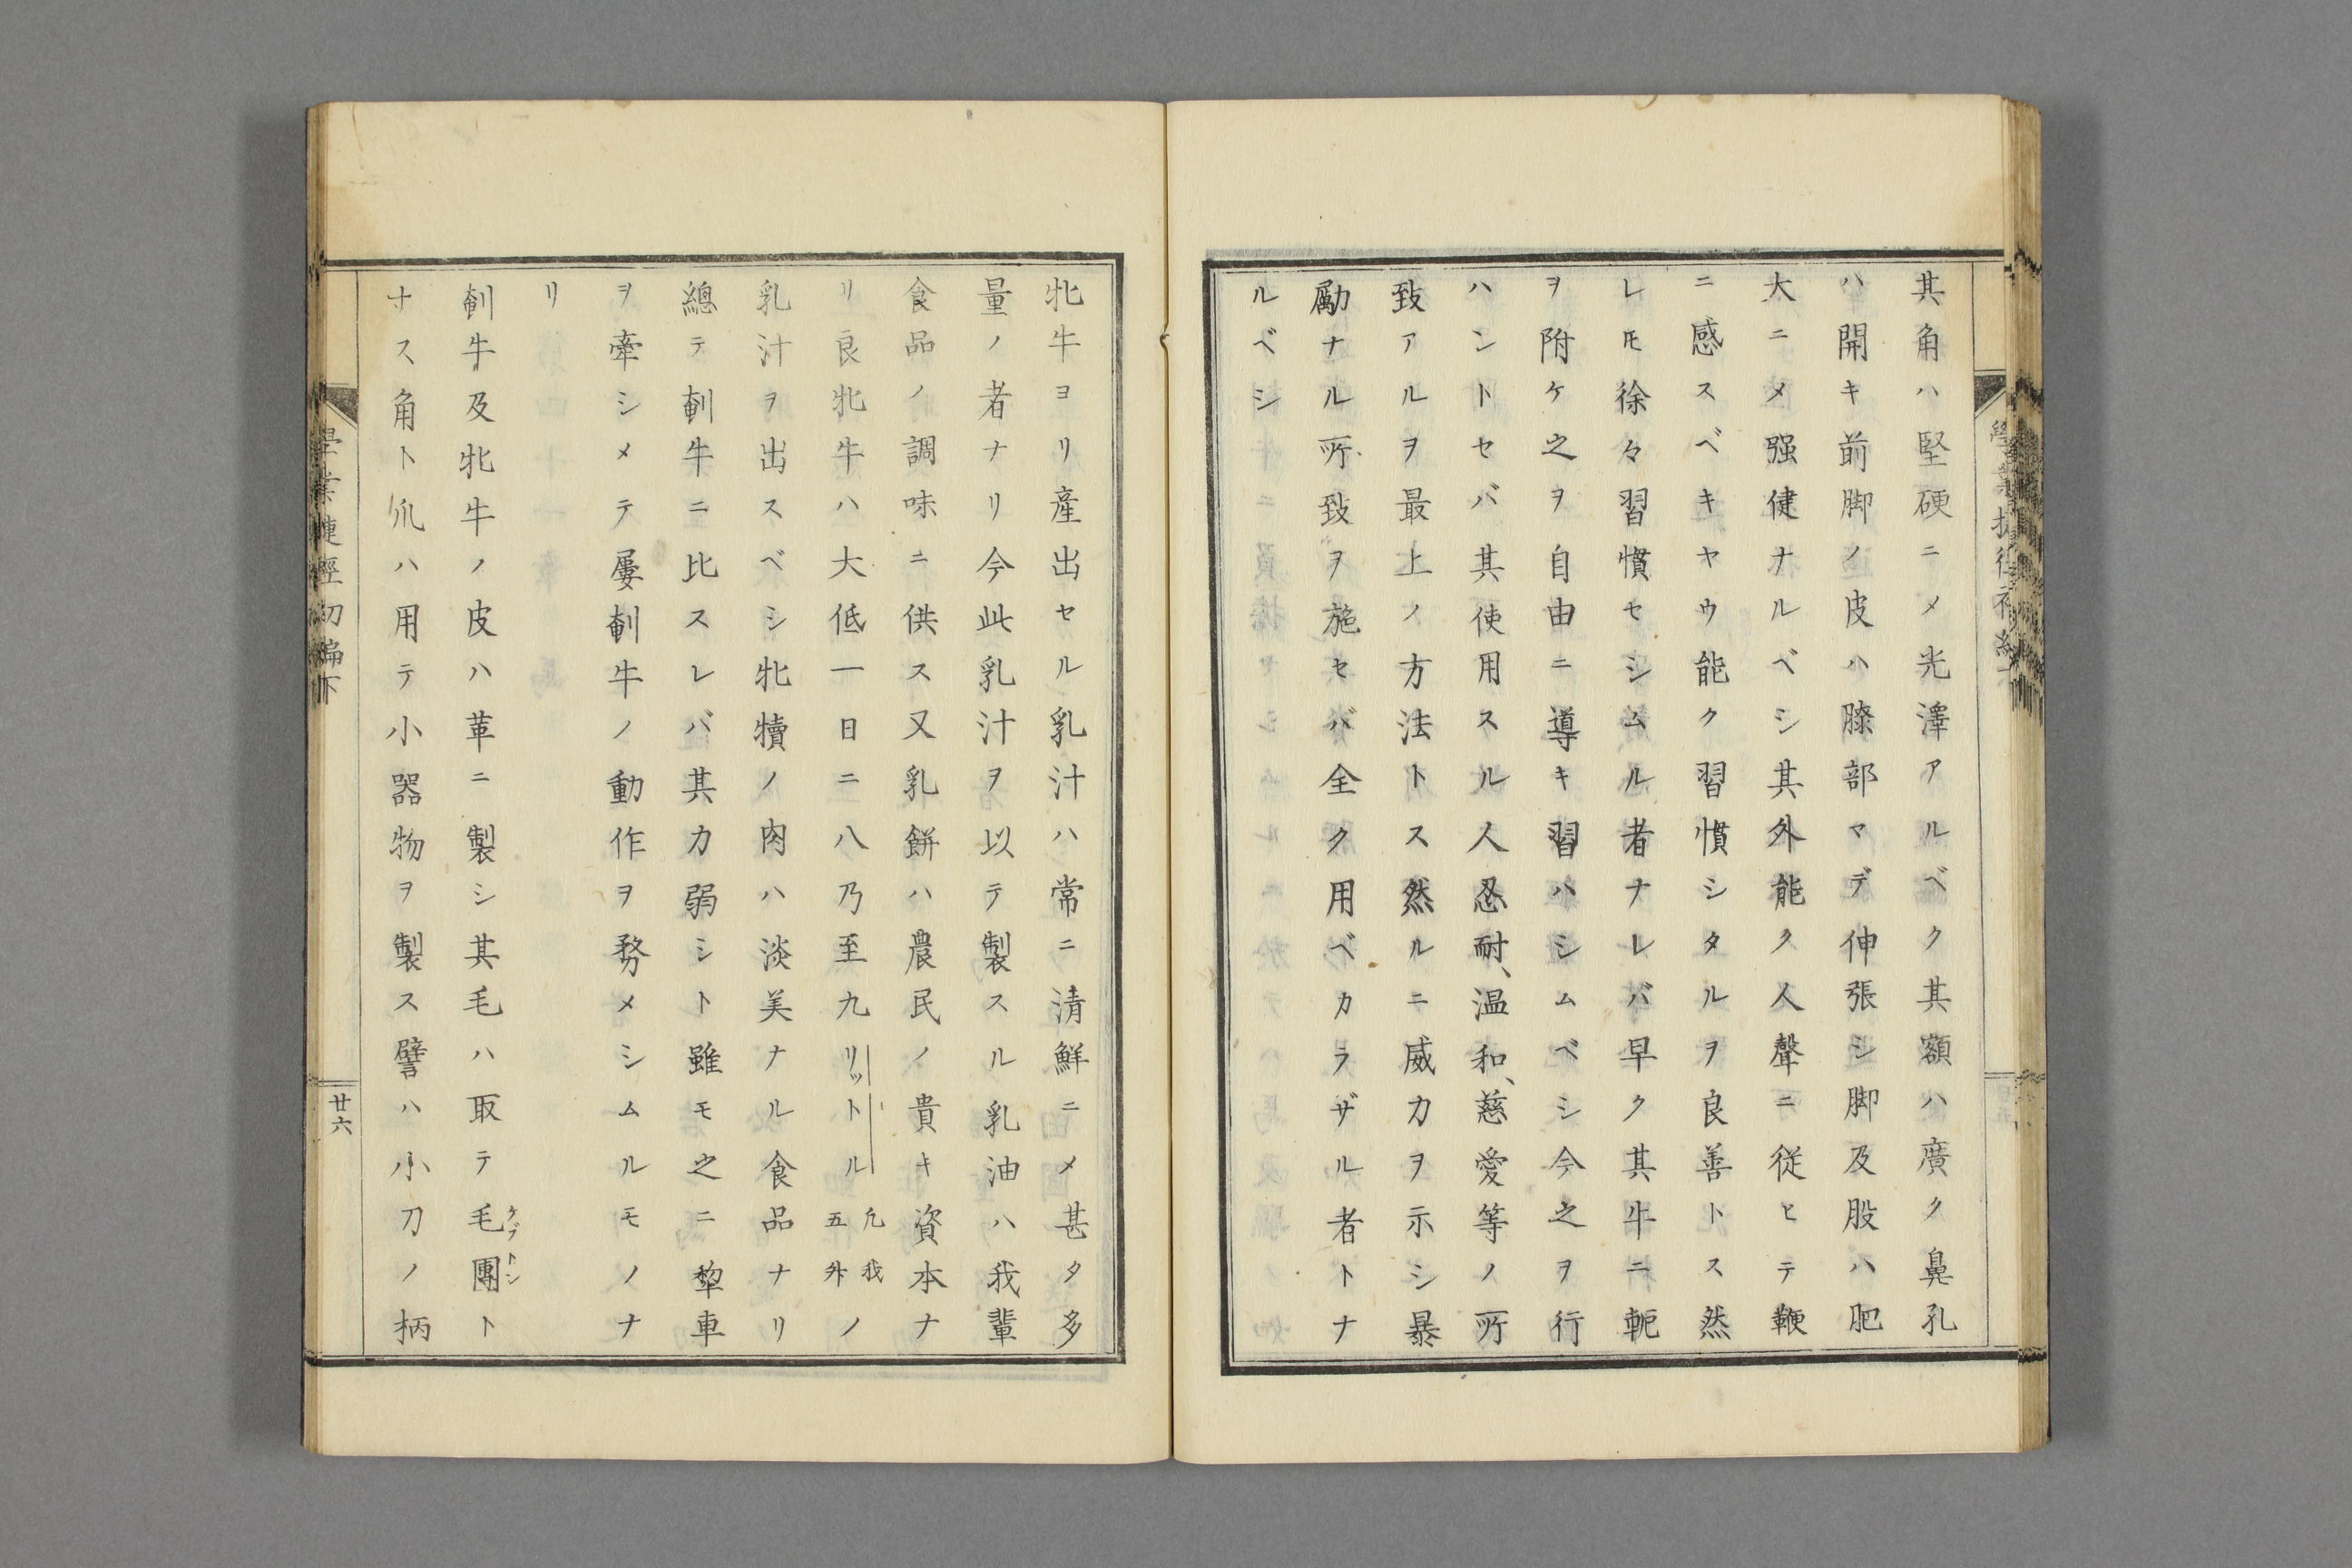 其角ハ堅硬ニメ光澤アルベク其額ハ廣ク鼻孔
ハ開キ前脚ノ皮ハ膝部マデ伸張シ脚及股ハ肥
大ニメ强健ナルベシ其外能ク人聲ニ従ヒテ鞭
ニ感スベキヤウ能ク習慣シタルヲ良善トス然
レ𪜈徐々習慣セシムル者ナレバ早ク其牛ニ軛
ヲ附ケ之ヲ自由ニ導キ習ハシムベシ今之ヲ行
ハントセバ其使用スル人忍耐、温和、慈愛等ノ所
致アルヲ最上ノ方法トス然ルニ威力ヲ示シ暴
勵ナル所致ヲ施セバ全ク用ベカラザル者トナ
ルベシ
牝牛ヨリ產出セル乳汁ハ常ニ清鮮ニメ甚タ多
量ノ者ナリ今此乳汁ヲ以テ製スル乳油ハ我輩
食品ノ調味ニ供ス又乳餅ハ農民ノ貴キ資本ナ
リ良牝牛ハ大低一日ニ八乃至九リットル凢我五升ノ
乳汁ヲ出スベシ牝犢ノ肉ハ淡美ナル食品ナリ
總テ㓺牛ニ比スレバ其力弱シト雖モ之ニ犂車
ヲ牽シメテ屢㓺牛ノ動作ヲ務メシムルモノナ
リ
㓺牛及牝牛ノ皮ハ革ニ製シ其毛ハ取テ毛團ト
ケブトン
ナス角ト爪ハ用テ小器物ヲ製ス譬ハ小刀ノ柄
學業捷徑初編下
廿六